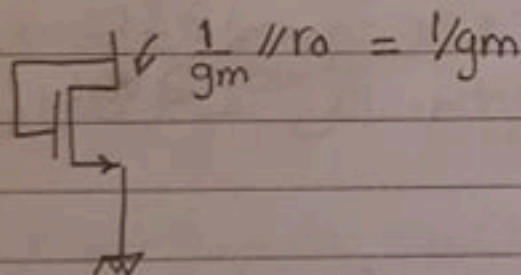 1/gm //ro = 1/gm